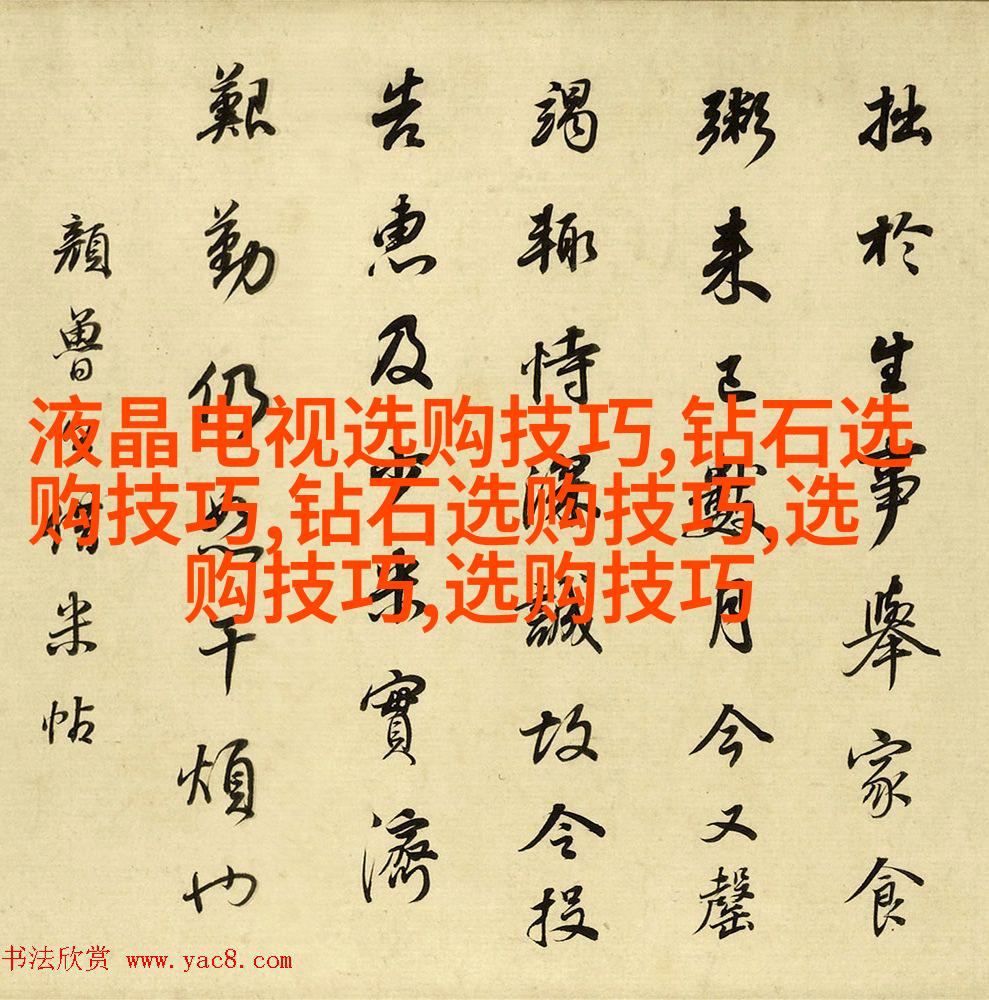 拙於生事舉家食
粥来已數月今又罄
竭輒恃深誠故令投
告惠及少米實濟
艱勤仍恕干煩也
顏魯公米帖
液晶电视选购技巧,钻石选
购技巧,钻石选购技巧,选
购技巧,选购技巧
书法欣赏 www.yac8.com